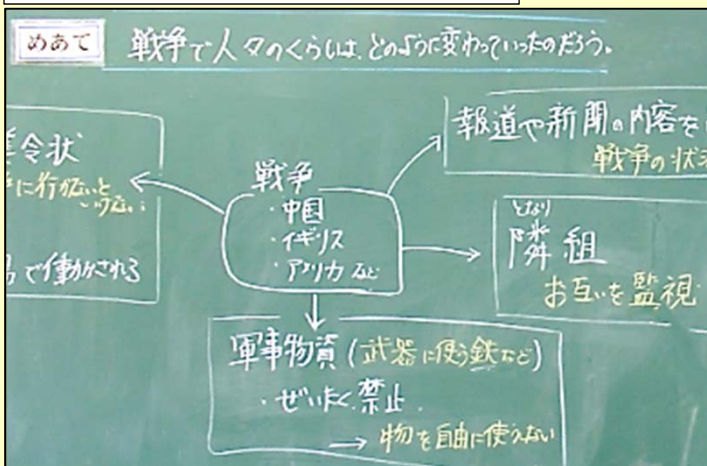 めあて
戦争で人々のくらしは、どのように変わっていったのだろう。
令状
に行かないと
いけない
で働かされる
戦争
・中国
・イギリス
・アメリカ など
報道や新聞の内容を
戦争の状
となり
隣組
お互いを監視
軍事物資（武器に使う鉄など）
・ぜいたく禁止
→ 物を自由に使えない